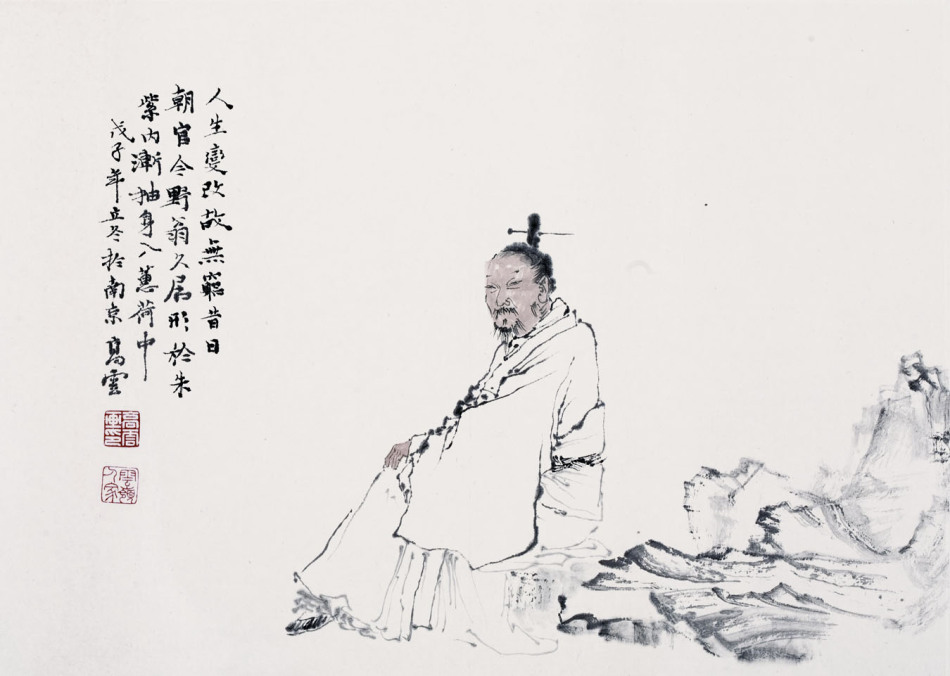 人生變改故無窮昔日
朝官今野翁久居形於朱
紫內漸抽身入蕙荷中
戊子年立冬於南京高雲